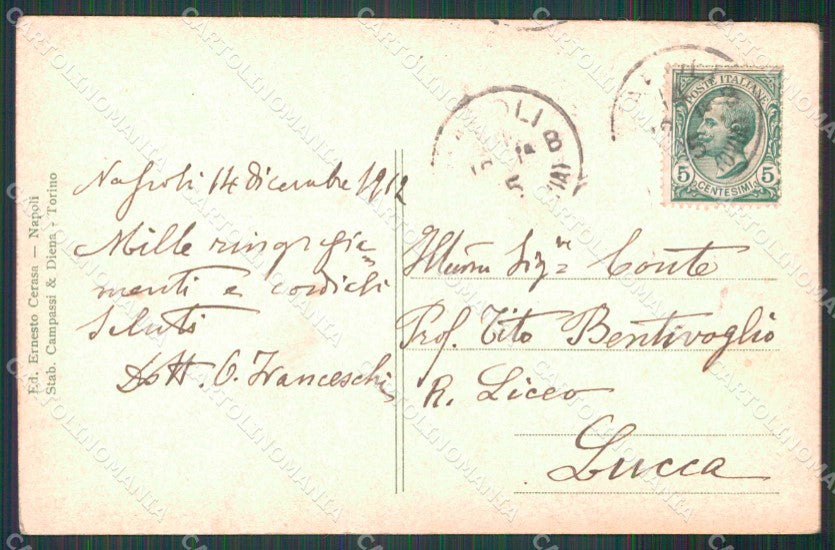 Ed. Ernesto Cerasa — Napoli
Stab. Campassi & Diena - Torino
Napoli 14 dicembre 1912
Mille ringrazia
menti e cordiali
saluti
Dott. O. Franceschi
Illmo Sigre Conte
Prof. Tito Bentivoglio
R. Liceo
Lucca
NAPOLI
POSTE ITALIANE
5 CENTESIMI 5
CARTOLINOMANIA